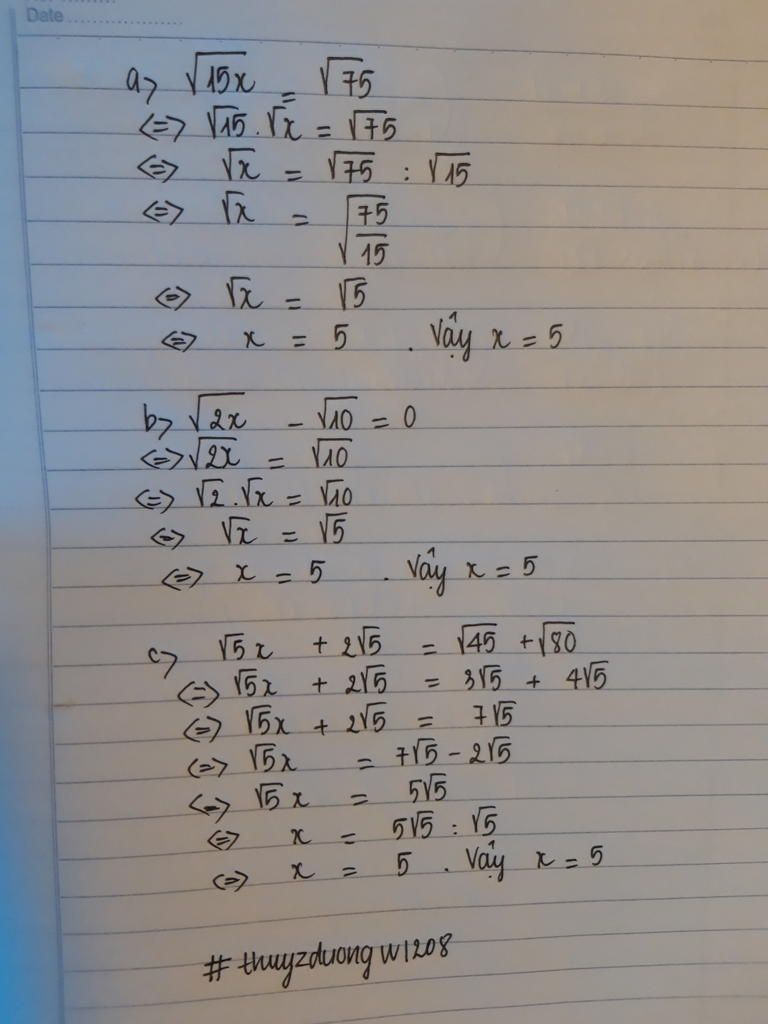 Date
a) √15x = √75
<=> √15 . √x = √75
<=> √x = √75 : √15
<=> √x = √(75/15)
<=> √x = √5
<=> x = 5 . Vậy x = 5
b) √2x - √10 = 0
<=> √2x = √10
<=> √2 . √x = √10
<=> √x = √5
<=> x = 5 . Vậy x = 5
c) √5x + 2√5 = √45 + √80
<=> √5x + 2√5 = 3√5 + 4√5
<=> √5x + 2√5 = 7√5
<=> √5x = 7√5 - 2√5
<=> √5x = 5√5
<=> x = 5√5 : √5
<=> x = 5 . Vậy x = 5
# thuyzduongw1208